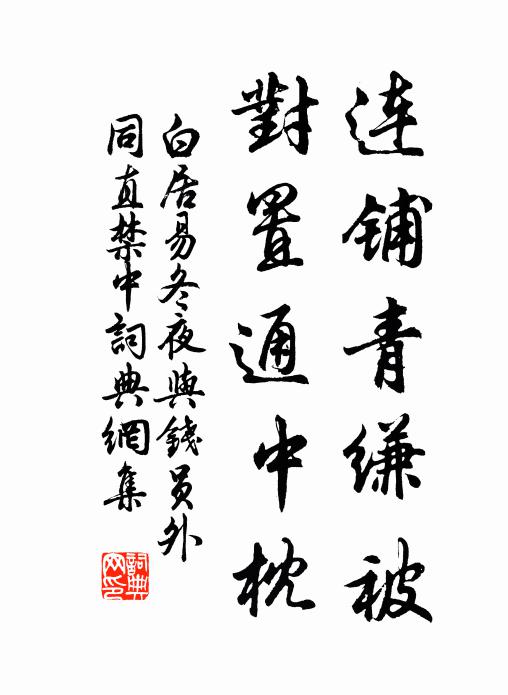 连铺青缣被
對置通中枕
白居易冬夜與錢员外
同直禁中詞典網集
詞典网印